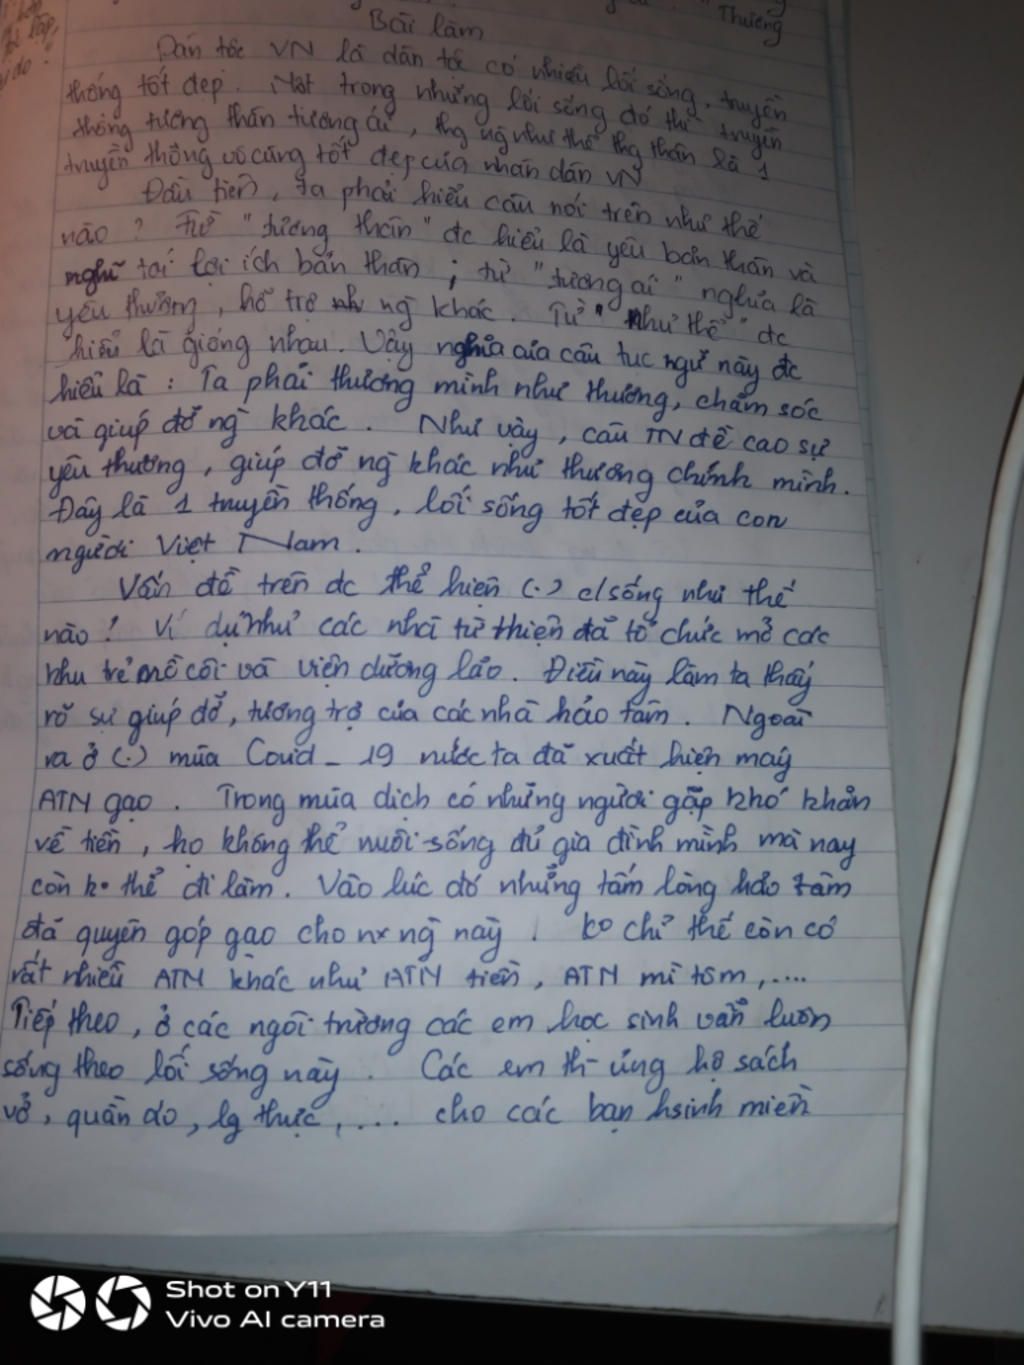 Thương
Bài làm
Dân tộc VN là dân tộc có nhiều lối sống, truyền
thống tốt đẹp. Một trong những lối sống đó thì truyền
thống tương thân tương ái, thg ng như thể thg thân là 1
truyền thống vô cùng tốt đẹp của nhân dân VN
Đầu tiên, ta phải hiểu câu nói trên như thế
nào? Từ "tương thân" đc hiểu là yêu bản thân và
nghĩ tới lợi ích bản thân; từ "tương ái" nghĩa là
yêu thương, hỗ trợ ng khác. Từ "như thể" đc
hiểu là giống nhau. Vậy nghĩa của câu tục ngữ này đc
hiểu là: Ta phải thương mình như thương, chăm sóc
và giúp đỡ ng khác. Như vậy, câu TN đề cao sự
yêu thương, giúp đỡ ng khác như thương chính mình.
Đây là 1 truyền thống, lối sống tốt đẹp của con
người Việt Nam.
Vấn đề trên đc thể hiện (.) c/sống như thế
nào? Ví dụ như các nhà từ thiện đã tổ chức mở các
khu trẻ mồ côi và viện dưỡng lão. Điều này làm ta thấy
rõ sự giúp đỡ, tương trợ của các nhà hảo tâm. Ngoài
ra ở (.) mùa Covid_19 nước ta đã xuất hiện máy
ATM gạo. Trong mùa dịch có những người gặp khó khăn
về tiền, họ không thể nuôi sống đủ gia đình mình mà nay
còn ko thể đi làm. Vào lúc đó những tấm lòng hảo tâm
đã quyên góp gạo cho nx ng này! ko chỉ thế còn có
rất nhiều ATM khác như ATM tiền, ATM mì tôm,....
Tiếp theo, ở các ngôi trường các em học sinh vẫn luôn
sống theo lối sống này. Các em th- ủng hộ sách
vở, quần áo, lg thực,... cho các bạn hsinh miền
Shot on Y11
Vivo AI camera